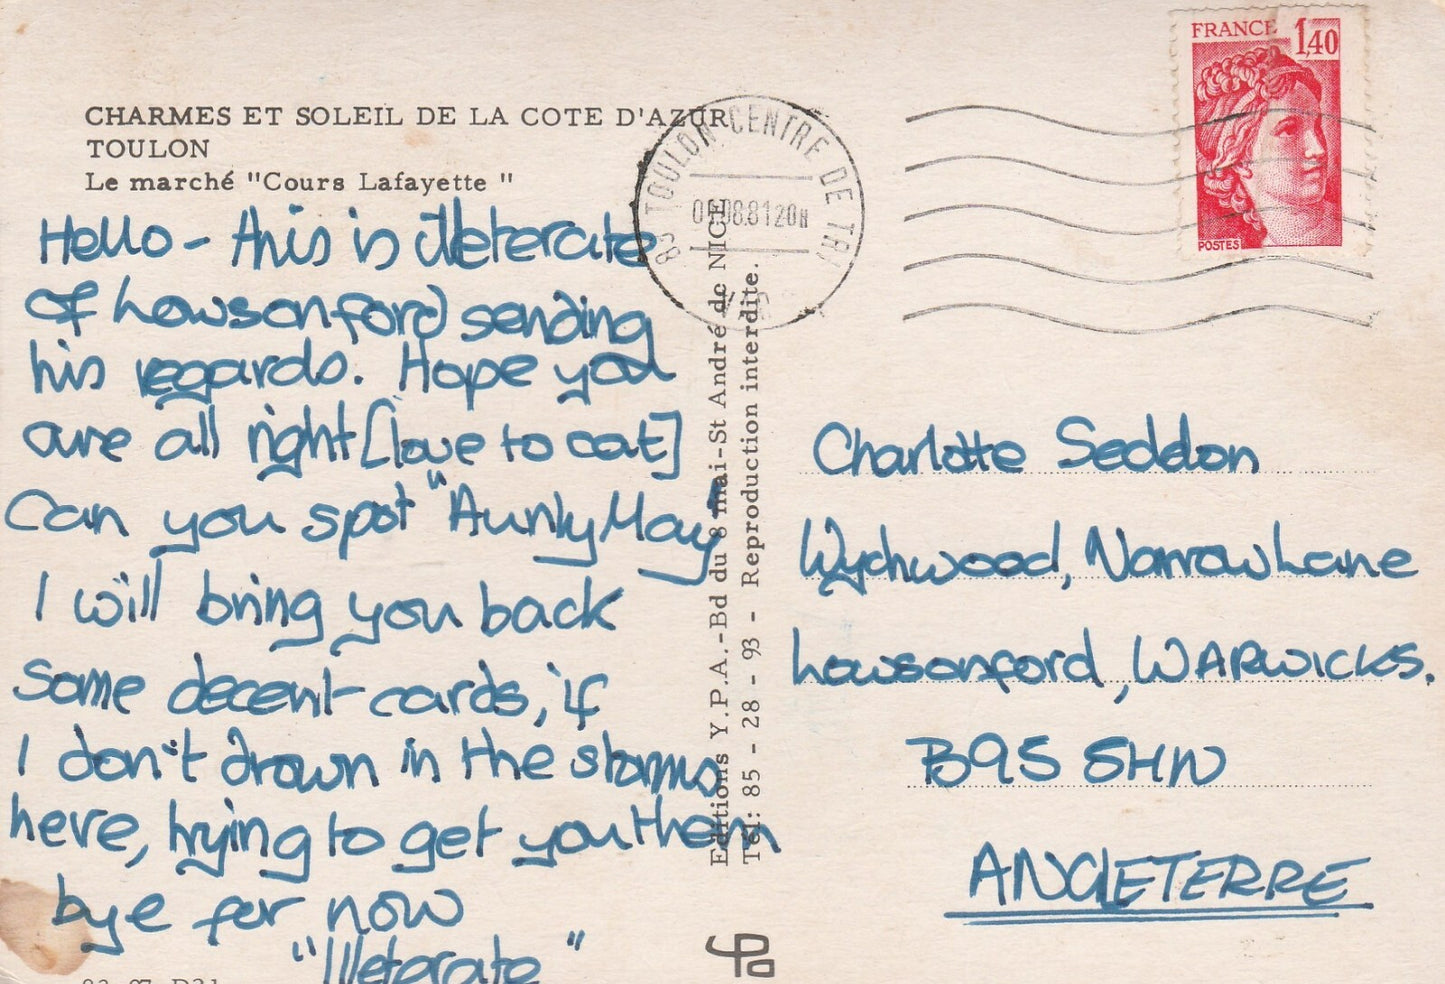 CHARMES ET SOLEIL DE LA COTE D'AZUR
TOULON
Le marché "Cours Lafayette "
Hello - this is illeterate
of Lowsonford sending
his regards. Hope you
are all right [love to cat]
Can you spot "Aunty May"
I will bring you back
some decent cards, if
I don't drown in the storms
here, trying to get you them
bye for now
"Illeterate"
Editions Y.P.A.-Bd du 8 mai-St André de NICE
Tél: 85 - 28 - 93 - Reproduction interdite.
83 TOULON CENTRE DE TRI
08.81 20H
FRANCE 1,40
POSTES
Charlotte Seddon
Wychwood, Narrow Lane
Lowsonford, WARWICKS.
B95 5HN
ANGLETERRE